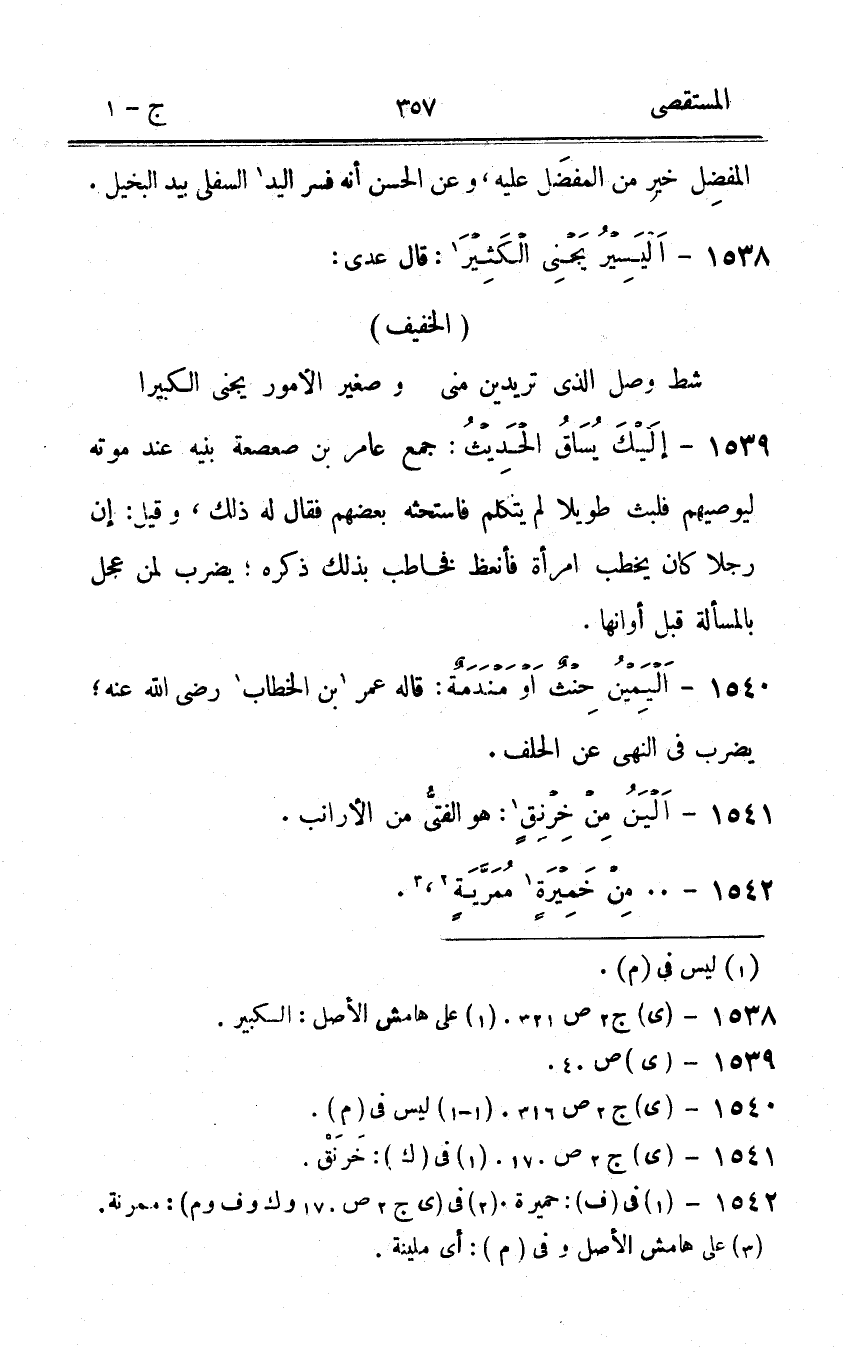 المستقصى ٣٥٧ ج - ١
المفضِل خير من المفضَل عليه، و عن الحسن أنه فسر اليد١ السفلى بيد البخيل .
١٥٣٨ - اَلْيَسِيرُ يَجْنِى الْكَثِيْرَ١ : قال عدى :
( الخفيف )
شط وصل الذى تريدين منى و صغير الأمور يجنى الكبيرا
١٥٣٩ - إلَيْكَ يُسَاقُ الْحَدِيْثُ : جمع عامر بن صعصعة بنيه عند موته
ليوصيهم فلبث طويلا لم يتكلم فاستحثه بعضهم فقال له ذلك ، و قيل : إن
رجلا كان يخطب امرأة فأنعظ فخاطب بذلك ذكره ؛ يضرب لمن عجل
بالمسألة قبل أوانها .
١٥٤٠ - اَلْيَمِيْنُ حِنْثٌ اَوْ مَنْدَمَةٌ : قاله عمر ١بن الخطاب١ رضى الله عنه ؛
يضرب فى النهى عن الحلف .
١٥٤١ - اَلْيَنُ مِنْ خِرْنِقٍ١ : هو الفتىُّ من الأرانب .
١٥٤٢ - .. مِنْ خَمِيْرَةٍ١ مُمَرَّيَةٍ٢،٣ .
(١) ليس فى (م) .
١٥٣٨ - (ى) ج٢ ص ٣٢١ . (١) على هامش الأصل : الكبير .
١٥٣٩ - ( ى ) ص ٤٠ .
١٥٤٠ - (ى) ج ٢ ص ٣١٦ . (١-١) ليس فى ( م ) .
١٥٤١ - (ى) ج ٢ ص ١٧٠ . (١) فى ( ك ) : خَرنَقْ .
١٥٤٢ - (١) فى (ف) : حميرة .(٢) فى (ى ج ٢ ص ١٧٠ و ك و ف و م) : ممرنة .
(٣) على هامش الأصل و فى ( م ) : أى ملينة .